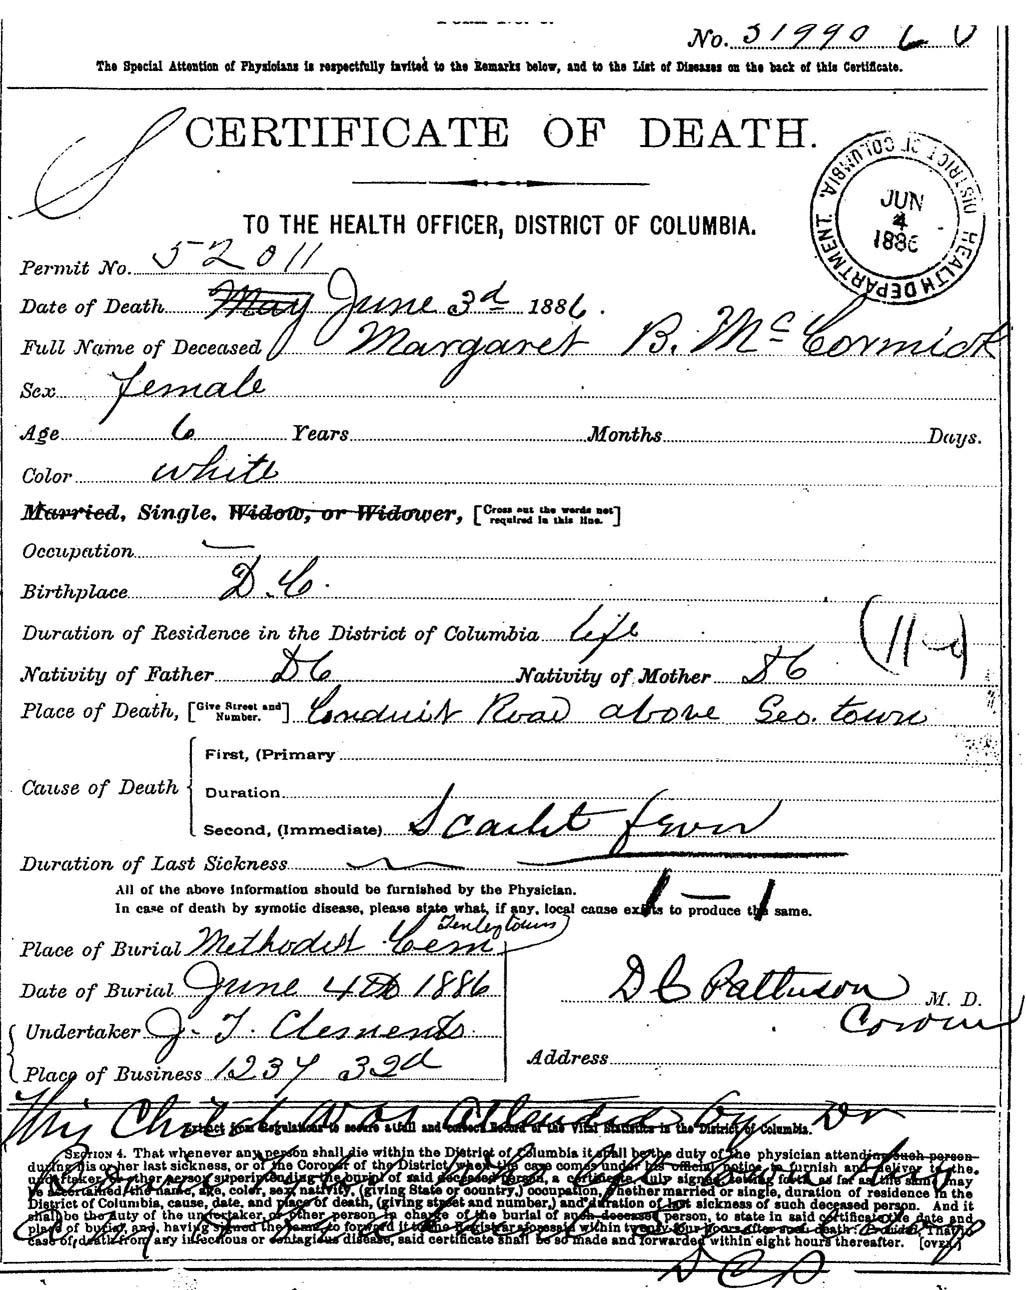 No. 51990
The Special Attention of Physicians is respectfully invited to the Remarks below, and to the List of Diseases on the back of this Certificate.
CERTIFICATE OF DEATH.
HEALTH DEPARTMENT. DISTRICT OF COLUMBIA.
JUN
4
1886
TO THE HEALTH OFFICER, DISTRICT OF COLUMBIA.
Permit No. 52011
Date of Death May June 3d 1886.
Full Name of Deceased Margaret B. McCormick
Sex female
Age 6 Years Months Days.
Color white
Married, Single, Widow, or Widower, [Cross out the words not required in this line.]
Occupation —
Birthplace D.C.
Duration of Residence in the District of Columbia life
Nativity of Father DC Nativity of Mother DC
Place of Death, [Give Street and Number.] Conduit Road above Geo. town
Cause of Death
First, (Primary
Duration
Second, (Immediate) Scarlet fever
Duration of Last Sickness
All of the above information should be furnished by the Physician.
In case of death by zymotic disease, please state what, if any, local cause exists to produce the same.
Place of Burial Methodist Cem Tenleytown
Date of Burial June 4th 1886
Undertaker J. T. Clements
Place of Business 1237 32d
D C Patterson M. D.
Address
This Child was attended by Dr
Extract from Regulations to secure a full and correct Record of the Vital Statistics in the District of Columbia.
SECTION 4. That whenever any person shall die within the District of Columbia it shall be the duty of the physician attending such person
during his or her last sickness, or of the Coroner of the District, when the case comes under his official notice, to furnish and deliver to the
undertaker, or other person superintending the burial of said deceased person, a certificate, duly signed, setting forth as far as the same may
be ascertained, the name, age, color, sex, nativity, (giving State or country,) occupation, whether married or single, duration of residence in the
District of Columbia, cause, date, and place of death, (giving street and number,) and duration of last sickness of such deceased person. And it
shall be the duty of the undertaker, or other person in charge of the burial of such deceased person, to state in said certificate the date and
place of burial, and, having signed the same, to forward it to the Registrar aforesaid within twenty-four hours after such death: Provided, That in
case of death from any infectious or contagious disease, said certificate shall be so made and forwarded within eight hours thereafter. [OVER.]
D C P